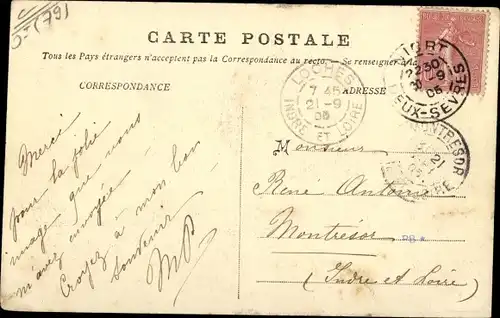 0-(79)
CARTE POSTALE
Tous les Pays étrangers n'acceptent pas la Correspondance au recto. Se renseigner à la
CORRESPONDANCE
ADRESSE
LOCHES
7 45
21-9
05
INDRE ET LOIRE
NIORT
1230
20-9
05
DEUX-SEVRES
MONTRESOR
21
Merci
pour la jolie
image que vous
m'avez envoyée
Croyez à mon bon
souvenir
Monsieur
René Antoine
Montrésor
(Indre et Loire)
PB*